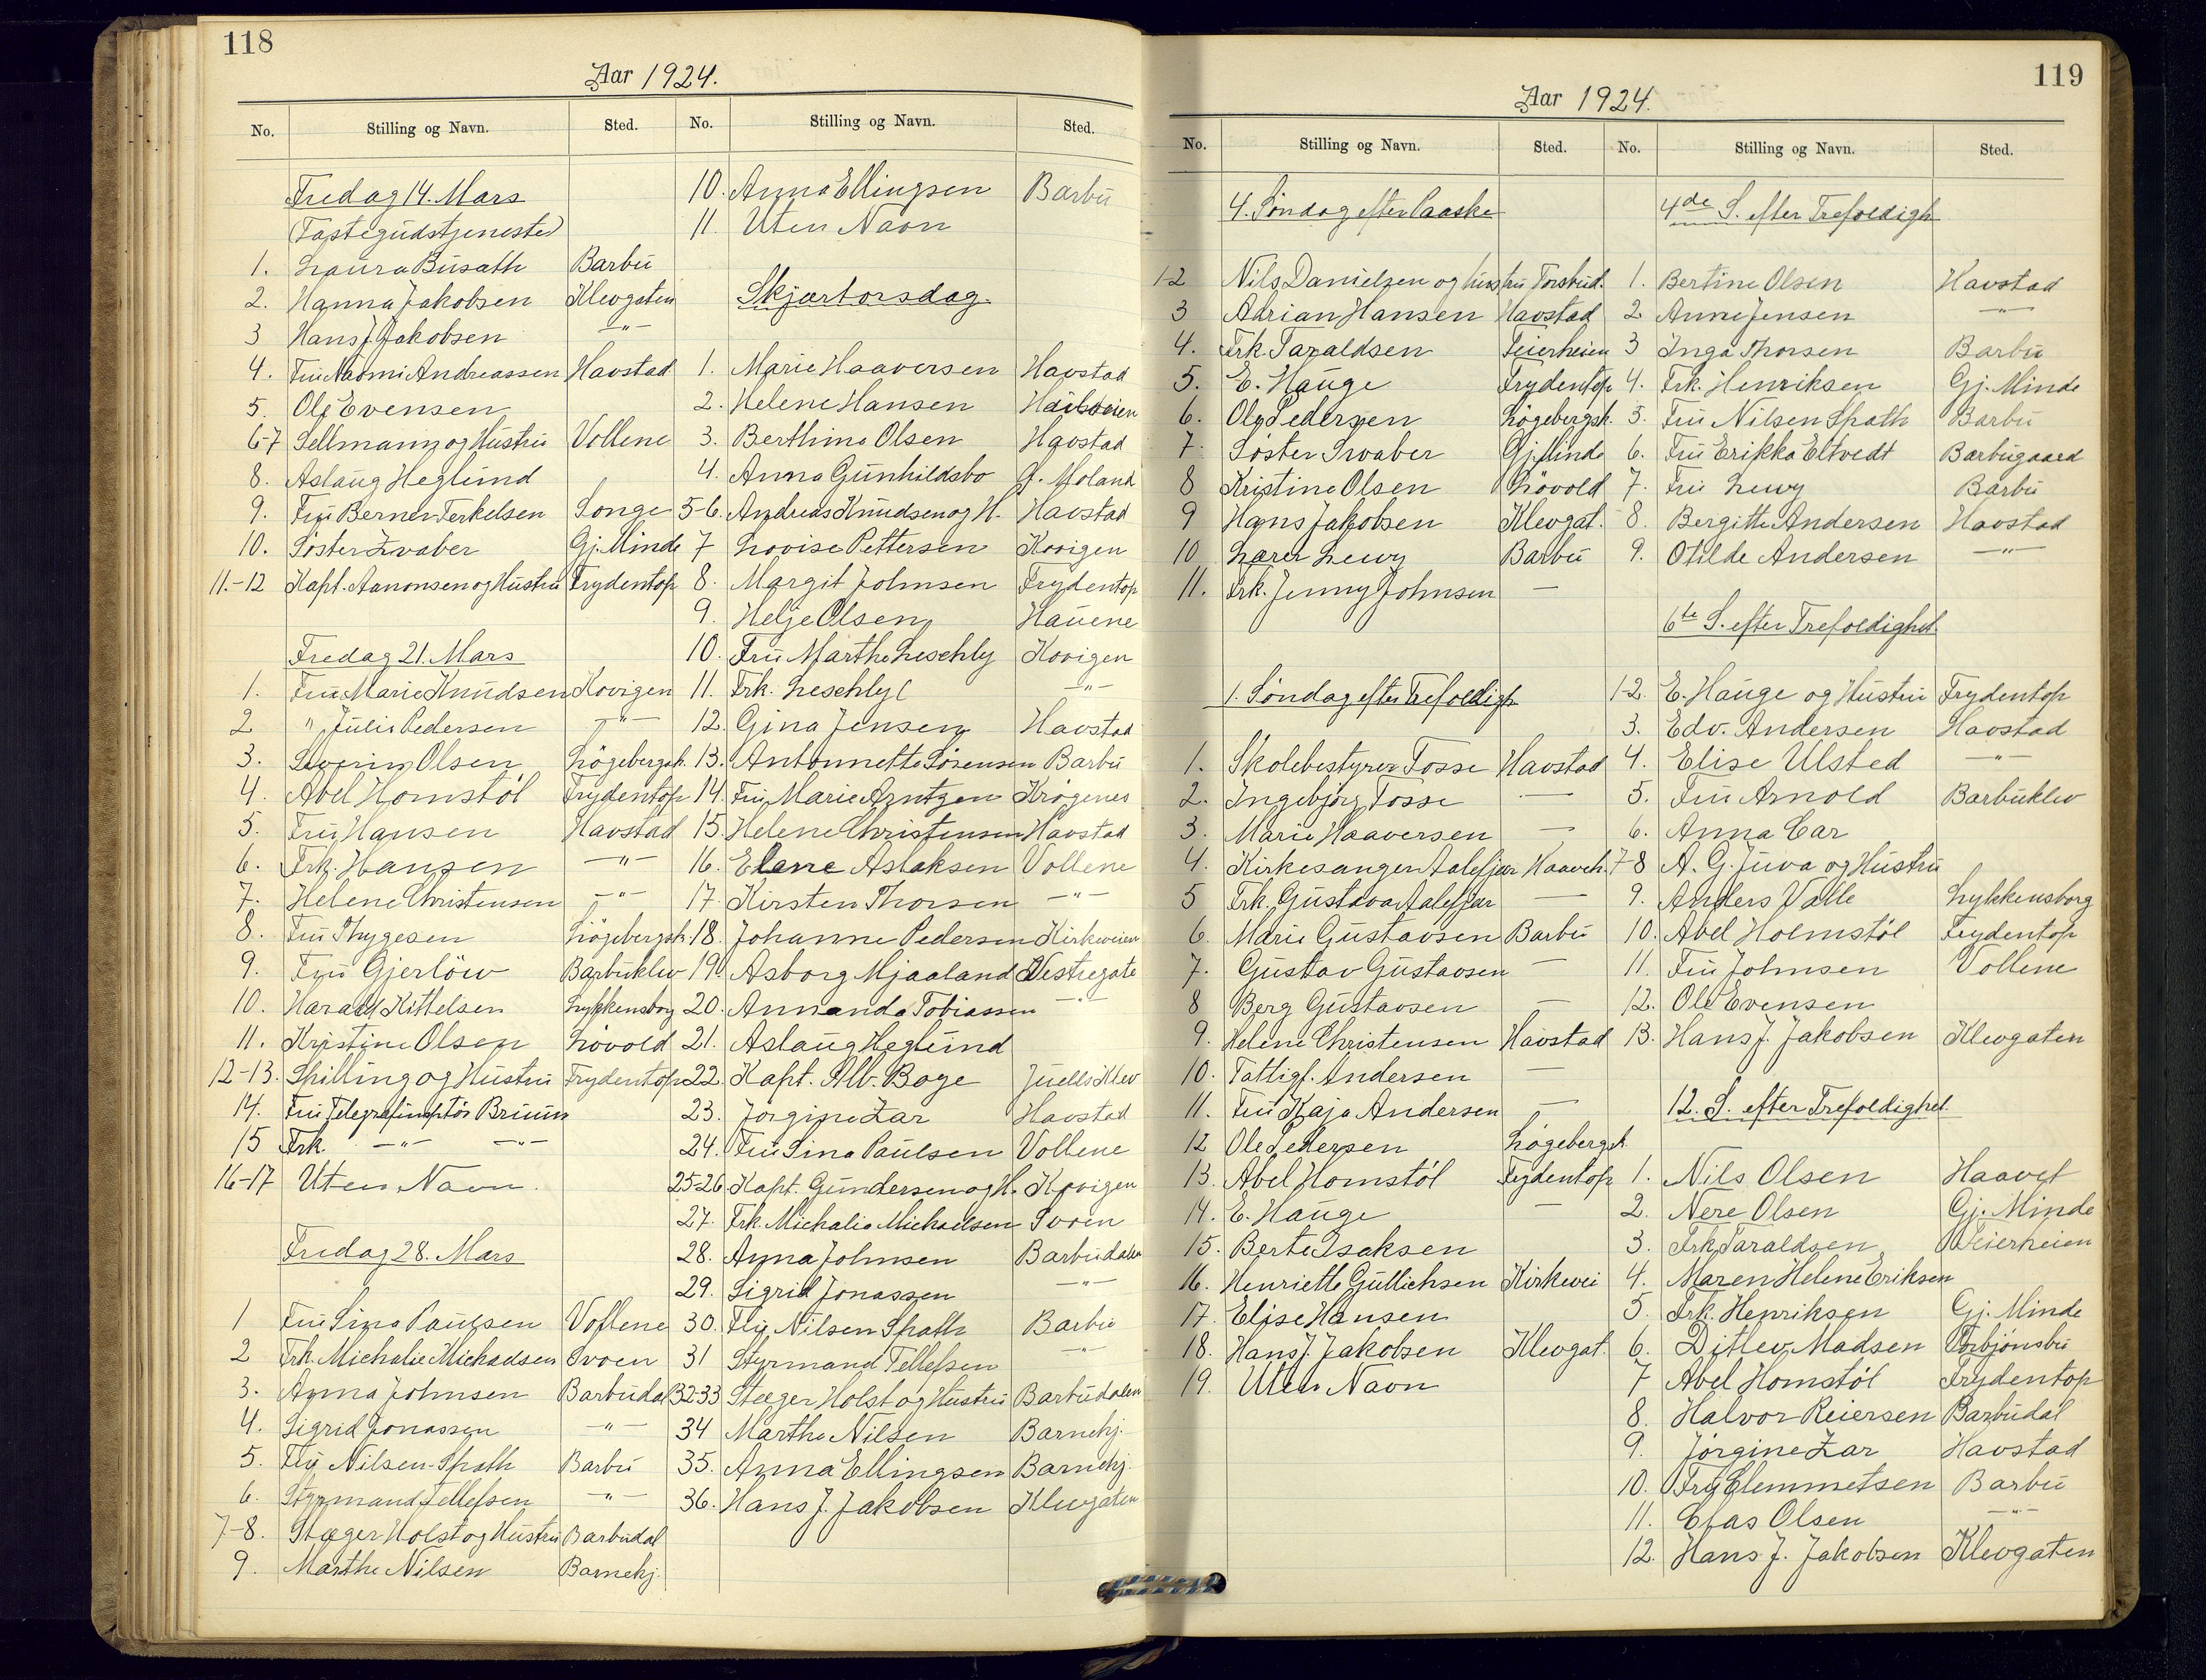 118
Aar 1924.
No. Stilling og Navn. Sted.
Fredag 14. Mars
(Fastegudstjeneste)
1. Laura Busath Barbu
2. Hanna Jakobsen Klevgaten
3 Hans J. Jakobsen —"—
4. Fru Naomi Andreassen Havstad
5. Ole Evensen
6-7 Sellmann og Hustru Vollene
8. Aslaug Heglund
9. Fru Berner Terkelsen Songe
10. Søster Svaber Gj. Minde
11.-12 Kapt. Aanonsen og Hustru Frydentop
Fredag 21. Mars
1. Fru Marie Knudsen Kovigen
2 " Julie Pedersen —"—
3. Severin Olsen Løgebergsk.
4. Abel Homstøl Frydentop
5. Fru Hansen Havstad
6. Frk. Hansen —"—
7. Helene Christensen —"—
8. Fru Thygesen Løgebergsk.
9. Fru Gjerløw Barbuklev
10. Harald Kittelsen Lykkensborg
11. Kristine Olsen Løvold
12-13. Spilling og Hustru Frydentop
14. Fru Bruun
15 Frk. —"— —"—
16-17 Uten Navn.
Fredag 28. Mars
1 Fru Sina Paulsen Vollene
2 Frk. Michalie Michaelsen Svoen
3. Anna Johnsen Barbudal
4. Sigrid Jonassen —"—
5. Nilsen-Spath Barbu
6. Styrmand Tellefsen —"—
7-8. Stæger Holst og Hustru Barbudal
9. Marthe Nilsen Barnehj.
No. Stilling og Navn. Sted.
10. Anna Ellingsen Barbu
11. Uten Navn
Skjærtorsdag.
1. Marie Haaversen Havstad
2. Helene Hansen
3. Berthine Olsen Havstad
4. Anna Gunhildsbo Ø. Moland
5-6. Andreas Knudsen og H. Havstad
7 Lovise Pettersen Kovigen
8. Margit Johnsen Frydentop
9. Helje Olsen Hauene
10. Fru Marthe Leschly Kovigen
11. Frk. Leschly —"—
12. Gina Jensen Havstad
13. Antonnette Sørensen Barbu
14. Fru Marie Arntzen Krøgenes
15. Helene Christensen Havstad
16. Aslaksen Vollene
17. Kirsten Thorsen —"—
18. Johanne Pedersen Kirkeveien
19. Asborg Mjaaland Vestregate
20. Annanda Tobiassen —"—
21. Aslaug Heglund
22. Kapt. Alb. Boye Juells Klev
23. Jørgine Zar Havstad
24. Fru Sina Paulsen Vollene
25-26. Kapt. Gundersen og H. Kovigen
27. Frk. Michalie Michaelsen Svoen
28. Anna Johnsen Barbudalen
29. Sigrid Jonassen —"—
30. Nilsen Spath Barbu
31 Styrmand Tellefsen —"—
32-33 Stæger Holst og Hustru Barbudalen
34 Marthe Nilsen Barnehj.
35. Anna Ellingsen Barnehj.
36. Hans J. Jakobsen Klevgaten
119
Aar 1924.
No. Stilling og Navn. Sted.
4. Søndag efter Paaske
1-2 Nils Danielsen og hustru Torsbud.
3 Adrian Hansen Havstad
4. Frk. Taraldsen Feierheien
5. E. Hauge Frydentop
6. Ole Pedersen Løgebergsk.
7. Søster Svaber Gj. Minde
8 Kristine Olsen Løvold
9 Hans Jakobsen Klevgat.
10 Lærer Lewy Barbu
11. Frk. Jenny Johnsen —
1. Søndag efter Trefoldigh
1. Skolebestyrer Fosse Havstad
2. Ingebjørg Fosse —
3. Marie Haaversen —
4. Kirkesanger Aalefjær Haaveh.
5 Frk. Gustava Aalefjær —
6. Marie Gustavsen Barbu
7. Gustav Gustavsen —
8 Berg Gustavsen —
9. Helene Christensen Havstad
10. Fattigf. Andersen —
11. Fru Kaja Andersen —
12 Ole Pedersen Løgebergsk.
13. Abel Homstøl Frydentop
14. E. Hauge —
15. Berte Isaksen
16. Henriette Gullichsen Kirkevei
17. Elise Hansen
18. Hans J. Jakobsen Klevgat.
19. Uten Navn
No. Stilling og Navn. Sted.
4de S. efter Trefoldigh
1. Bertine Olsen Havstad
2 Anne Jensen —"—
3 Inga Thorsen Barbu
4. Frk. Henriksen Gj. Minde
5. Fru Nilsen Spath Barbu
6. Fru Erikka Eltvedt Barbugaard
7. Fru Lewy Barbu
8. Bergitte Andersen Havstad
9. Otilde Andersen —"—
6te S. efter Trefoldighet.
1-2. E. Hauge og Hustru Frydentop
3. Edv. Andersen Havstad
4. Elise Ulsted —"—
5. Fru Arnold Barbuklev
6. Anna Car
7-8 A. G. Juva og Hustru
9. Anders Valle Lykkensborg
10. Abel Holmstøl Frydentop
11. Fru Johnsen Vollene
12. Ole Evensen
13. Hans J. Jakobsen Klevgaten
12. S. efter Trefoldighet.
1. Nils Olsen Haavet
2. Nere Olsen Gj. Minde
3. Frk. Taraldsen Feierheien
4. Maren Helene Eriksen
5. Frk. Henriksen Gj. Minde
6. Ditlev Madsen Torbjønsbu
7 Abel Homstøl Frydentop
8. Halvor Reiersen Barbudal
9. Jørgine Zar Havstad
10. Fru Clemmetsen Barbu
11. Olsen —"—
12. Hans J. Jakobsen Klevgaten